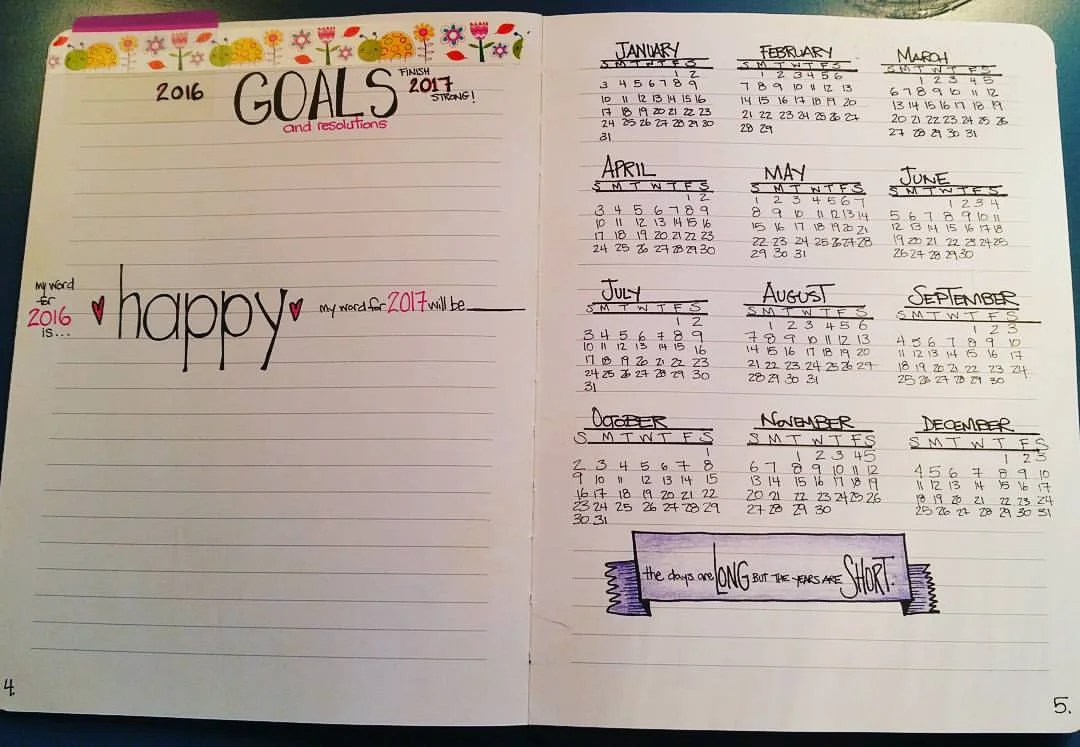 2016
GOALS
and resolutions
FINISH
2017
STRONG!
my word
for
2016
is...
happy
my word for 2017 will be
4.
JANUARY
S M T W T F S
1 2
3 4 5 6 7 8 9
10 11 12 13 14 15 16
17 18 19 20 21 22 23
24 25 26 27 28 29 30
31
FEBRUARY
S M T W T F S
1 2 3 4 5 6
7 8 9 10 11 12 13
14 15 16 17 18 19 20
21 22 23 24 25 26 27
28 29
MARCH
S M T W T F S
1 2 3 4 5
6 7 8 9 10 11 12
13 14 15 16 17 18 19
20 21 22 23 24 25 26
27 28 29 30 31
APRIL
S M T W T F S
1 2
3 4 5 6 7 8 9
10 11 12 13 14 15 16
17 18 19 20 21 22 23
24 25 26 27 28 29 30
MAY
S M T W T F S
1 2 3 4 5 6 7
8 9 10 11 12 13 14
15 16 17 18 19 20 21
22 23 24 25 26 27 28
29 30 31
JUNE
S M T W T F S
1 2 3 4
5 6 7 8 9 10 11
12 13 14 15 16 17 18
19 20 21 22 23 24 25
26 27 28 29 30
JULY
S M T W T F S
1 2
3 4 5 6 7 8 9
10 11 12 13 14 15 16
17 18 19 20 21 22 23
24 25 26 27 28 29 30
31
AUGUST
S M T W T F S
1 2 3 4 5 6
7 8 9 10 11 12 13
14 15 16 17 18 19 20
21 22 23 24 25 26 27
28 29 30 31
SEPTEMBER
S M T W T F S
1 2 3
4 5 6 7 8 9 10
11 12 13 14 15 16 17
18 19 20 21 22 23 24
25 26 27 28 29 30
OCTOBER
S M T W T F S
1
2 3 4 5 6 7 8
9 10 11 12 13 14 15
16 17 18 19 20 21 22
23 24 25 26 27 28 29
30 31
NOVEMBER
S M T W T F S
1 2 3 4 5
6 7 8 9 10 11 12
13 14 15 16 17 18 19
20 21 22 23 24 25 26
27 28 29 30
DECEMBER
S M T W T F S
1 2 3
4 5 6 7 8 9 10
11 12 13 14 15 16 17
18 19 20 21 22 23 24
25 26 27 28 29 30 31
the days are LONG BUT THE YEARS ARE SHORT.
5.